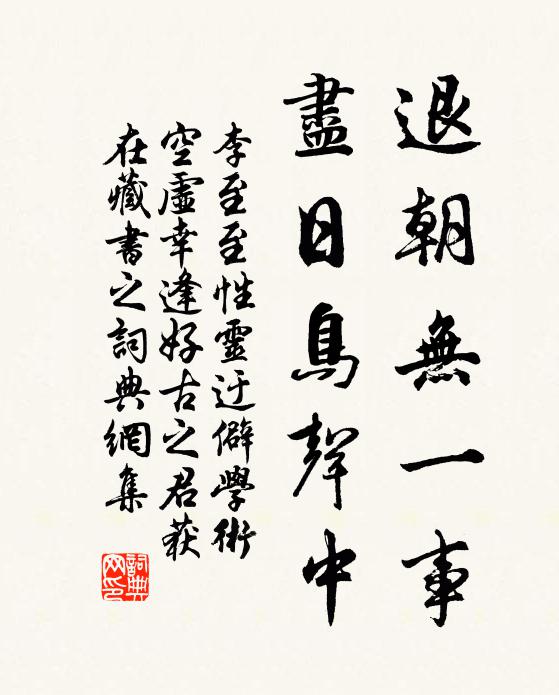 退朝無一事
盡日鳥聲中
李至至性靈迂僻學術
空虛幸逢好古之君获
在藏書之詞典網集
詞典网印